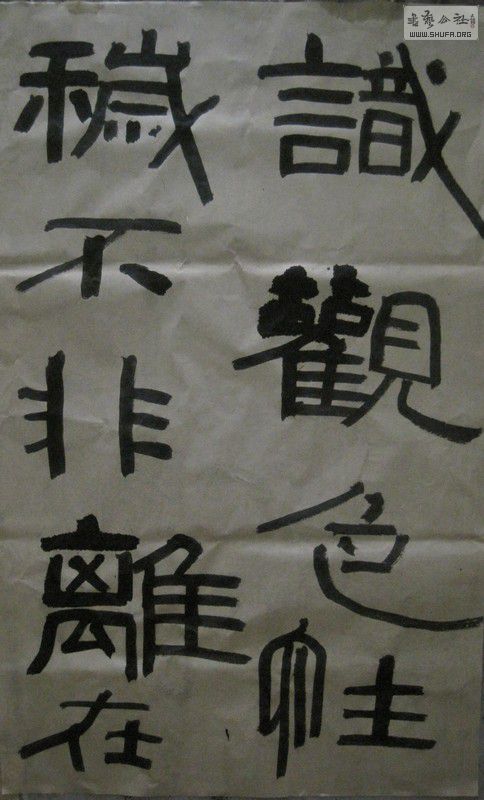 識觀色性
穢不非離在
書藝公社
WWW.SHUFA.ORG